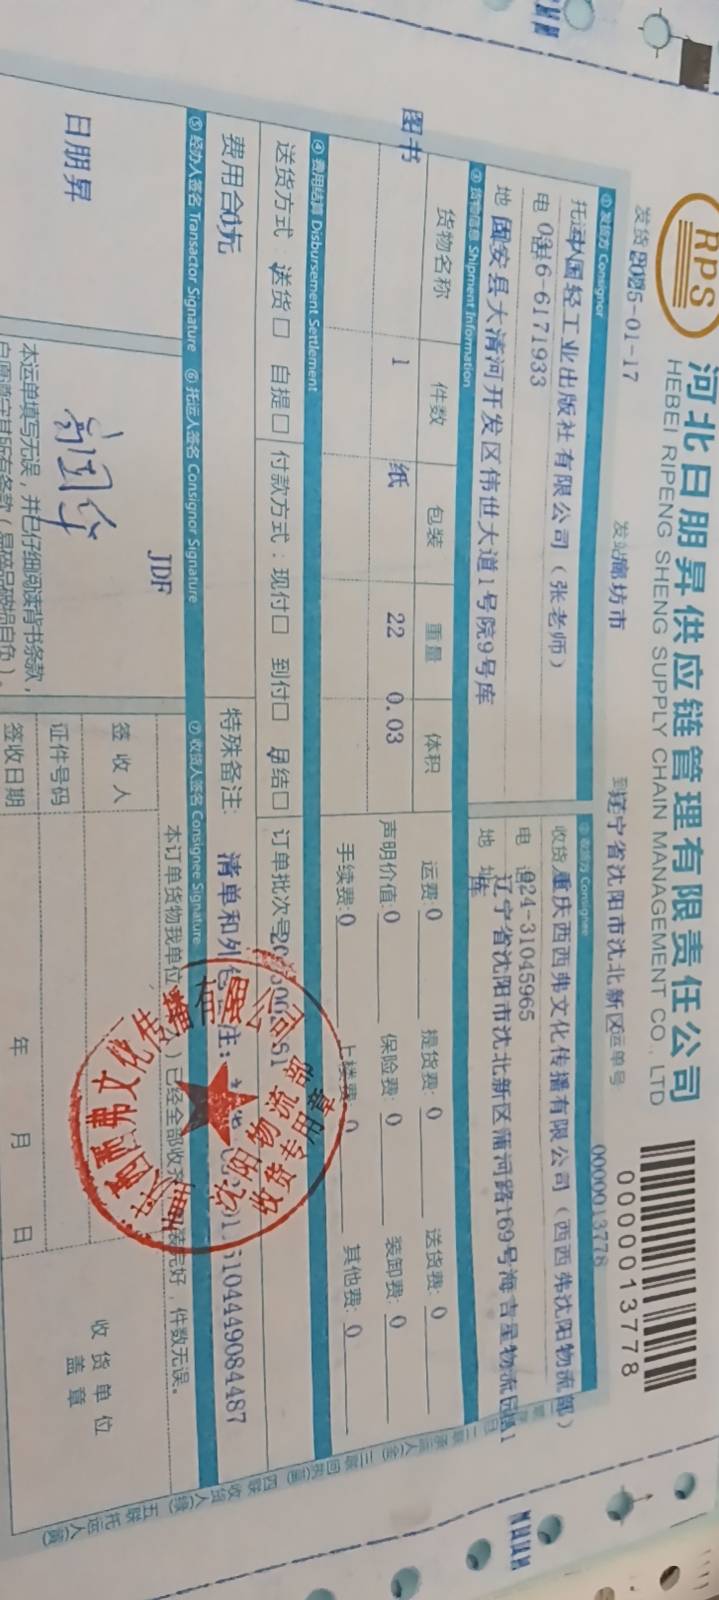 RPS
河北日朋昇供应链管理有限责任公司
HEBEI RIPENG SHENG SUPPLY CHAIN MANAGEMENT CO., LTD
0000013778
发货 2025-01-17 发站 廊坊市 到 辽宁省沈阳市沈北新区 运单号 0000013778
① 发货方 Consignor ② 收货方 Consignee
托运 中国轻工业出版社有限公司（张老师） 收货 重庆西西弗文化传播有限公司（西西弗沈阳物流部）
电 0316-6171933 电 024-31045965
地 固安县大清河开发区伟世大道1号院9号库 地 址 辽宁省沈阳市沈北新区蒲河路169号海吉星物流园
库
③ 货物信息 Shipment Information
货物名称 件数 包装 重量 体积 运费:0 提货费: 0 送货费: 0
图书 1 纸 22 0.03 声明价值:0 保险费: 0 装卸费: 0
手续费:0 上楼费: 0 其他费: 0
④ 费用结算 Disbursement Settlement
送货方式：送货□ 自提□ 付款方式：现付□ 到付□ 月结□ 订单批次号
费用合 0元 特殊备注: 清单和外包 注:
⑤ 经办人签名 Transactor Signature ⑥ 托运人签名 Consignor Signature ⑦ 收货人签名 Consignee Signature
日朋昇
JDF
本订单货物我单位 已经全部收齐 装完好，件数无误。
签 收 人
证件号码
签收日期 年 月 日
收货单位
盖 章
本运单填写无误，并已仔细阅读背书条款，
重庆西西弗文化传播有限公司
沈阳物流部
收货专用章